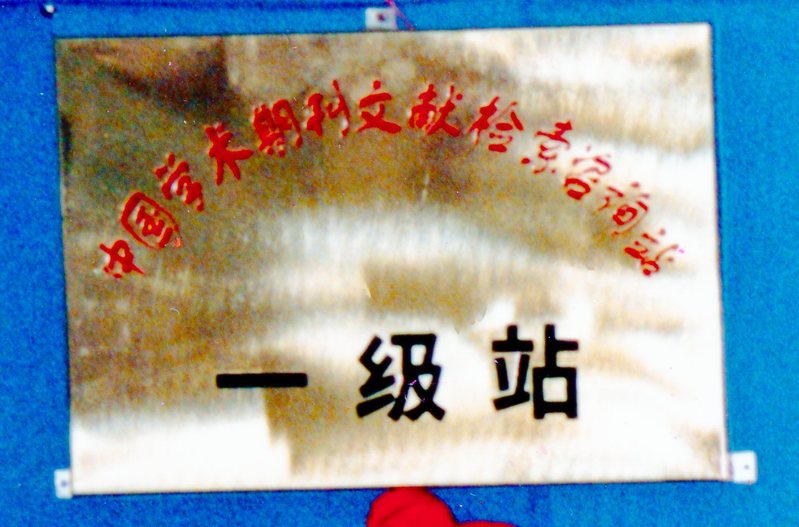 中国学术期刊文献检索咨询站
一级站